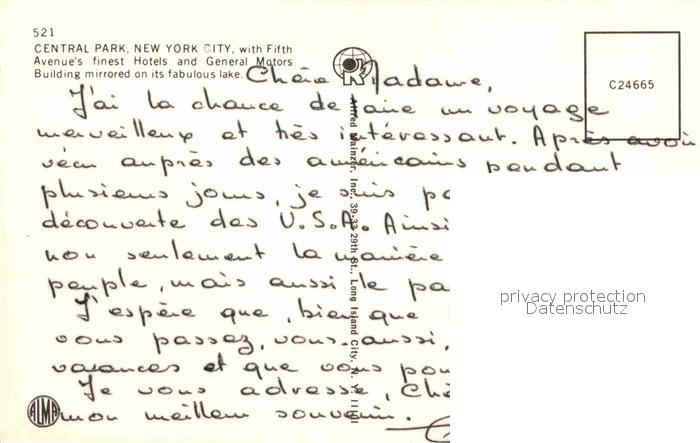 521
CENTRAL PARK, NEW YORK CITY, with Fifth
Avenue's finest Hotels and General Motors
Building mirrored on its fabulous lake.
C24665
Alfred Mainzer, Inc., 39-33 29th St., Long Island City, N. Y. 11101
Chère Madame,
J'ai la chance de faire un voyage
merveilleux et très intéressant. Après avoir
vécu auprès des américains pendant
plusieurs jours, je suis
découverte des U.S.A. Ainsi
non seulement la manière
peuple, mais aussi le
J'espère que, bien que
vous passez, vous aussi,
vacances et que vous
Je vous adresse,
mon meilleur souvenir.
privacy protection
Datenschutz
ALMA